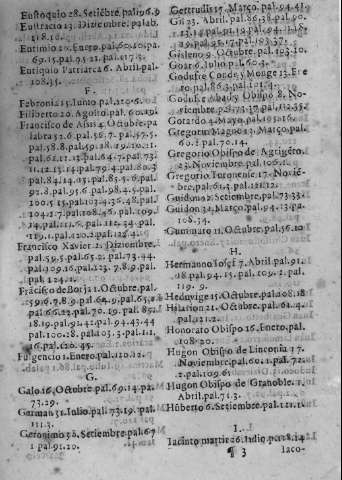 Eustoquio 28. Setiẽbre.pal.96.9
Eustracio 13. Diziembre. palab.
18.16.
Eutimio 20. Enero. pal.60.10. pa.
Eutiquio Patriarca 6. Abril. pal.
108.35.
F.
Febronia 25. Iunio. pal.
Filiberto 20. Agosto. pal. 60.19.
Francisco de Asis 4. Octubre. pa
labra 3.16. pal. 56.7. pal. 57.5.
pal. 58.8. pal. 59.18. pal.
pal. 61.11.13. pal. 64.7. pal. 73.
11.12.15. pal. 79.4. pal. 80.3
pal. 84.14. pal. 85.5.6. pal.
92.8. pal. 95.6. pal. 98.4.5. pal.
100.5.15. pal. 103.4.36.48. pal.
104.17. pal. 108. pal. 109.
14. pal. 111.6. pal. 114.34. pal.
119.1. pal. 120.2. pal.
Francisco Xavier 2. Diziembre.
pal. 59.5. pal. 65.21. pal. 73.44.
pal. 109.16. pal. 123.7.8.9. pal.
pal. 124.11.
Frãcisco de Borja 1. Octubre. pal.
59.6.7.8.9. pal. 64.9. pal. 65.18
pal. 66.12. pal. 70.19. pal. 89.
18.19. pal. 91.41. pal. 94.43.44
pal. 100.28. pal. 103.3. pal. 111.
16. pal. 120.45.
Fulgencio 1. Enero. pal. 120.12.
G.
Galo 16. Octubre. pal. 69.14. pa.
73.29.
German 31. Iulio. pal. 73.19. pal.
111.3.
Geronimo 30. Setiembre. pal. 67
1. pal. 91.20.
Gertrudis 17. Março. pal. 94.41
Gil 23. Abril. pal. 86.38. pal. 90.
Gisleno 9. Octubre. pal. 103.10.
Goar 6. Iulio. pal. 60.3.
Godofre Conde, y Monge 13. Ene
ro. pal. 86.3. pal. 101.4.
Godofre Abad, y Obispo 8. No-
viembre. pal. 73.37. pal. 112.35.
Gotardo 4. Mayo. pal. 91.16.
Gregorio Magno 12. Março. pal.
60.1. pal. 70.14.
Gregorio Obispo de Agrigẽto.
23. Noviembre. pal. 106.1.
Gregorio Turonense. 17. Noviẽ-
bre. pal. 61.4. pal. 111.12.
Guidon 12. Setiembre. pal. 73.33.
Guidon 31. Março. pal. 94.13. pa
108.34.
Gummaro 11. Octubre. pal. 56.10
H.
Hermanno Iosef 7. Abril. pal. 91.
18. pal. 94.15. pal. 109.2. pal.
119.9.
Heduvige 15. Octubre. pal. 108.18
Hilarion 21. Octubre. pal. 61. pal.
pal. 121.2.
Honorato Obispo 16. Enero. pal.
108.20.
Hugon Obispo de Linconia 17.
Noviembre. pal. 60.1. pal. 72.
2. pal. 109.61
Hugon Obispo de Granoble. 1.
Abril. pal. 71.3.
Hũberto 6. Setiembre. pal. 121.1.
I.
Iacinto martir 26. Iulio. pa. 118.14
¶ 3 Iaco-